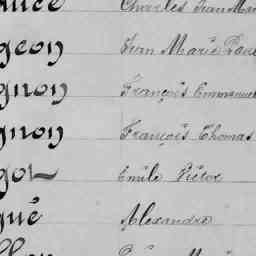 Charles Jean Mar
geon Jean Marie
gnon François Emmanuel
gnon François Thomas
got Emile Victor
gué Alexandre